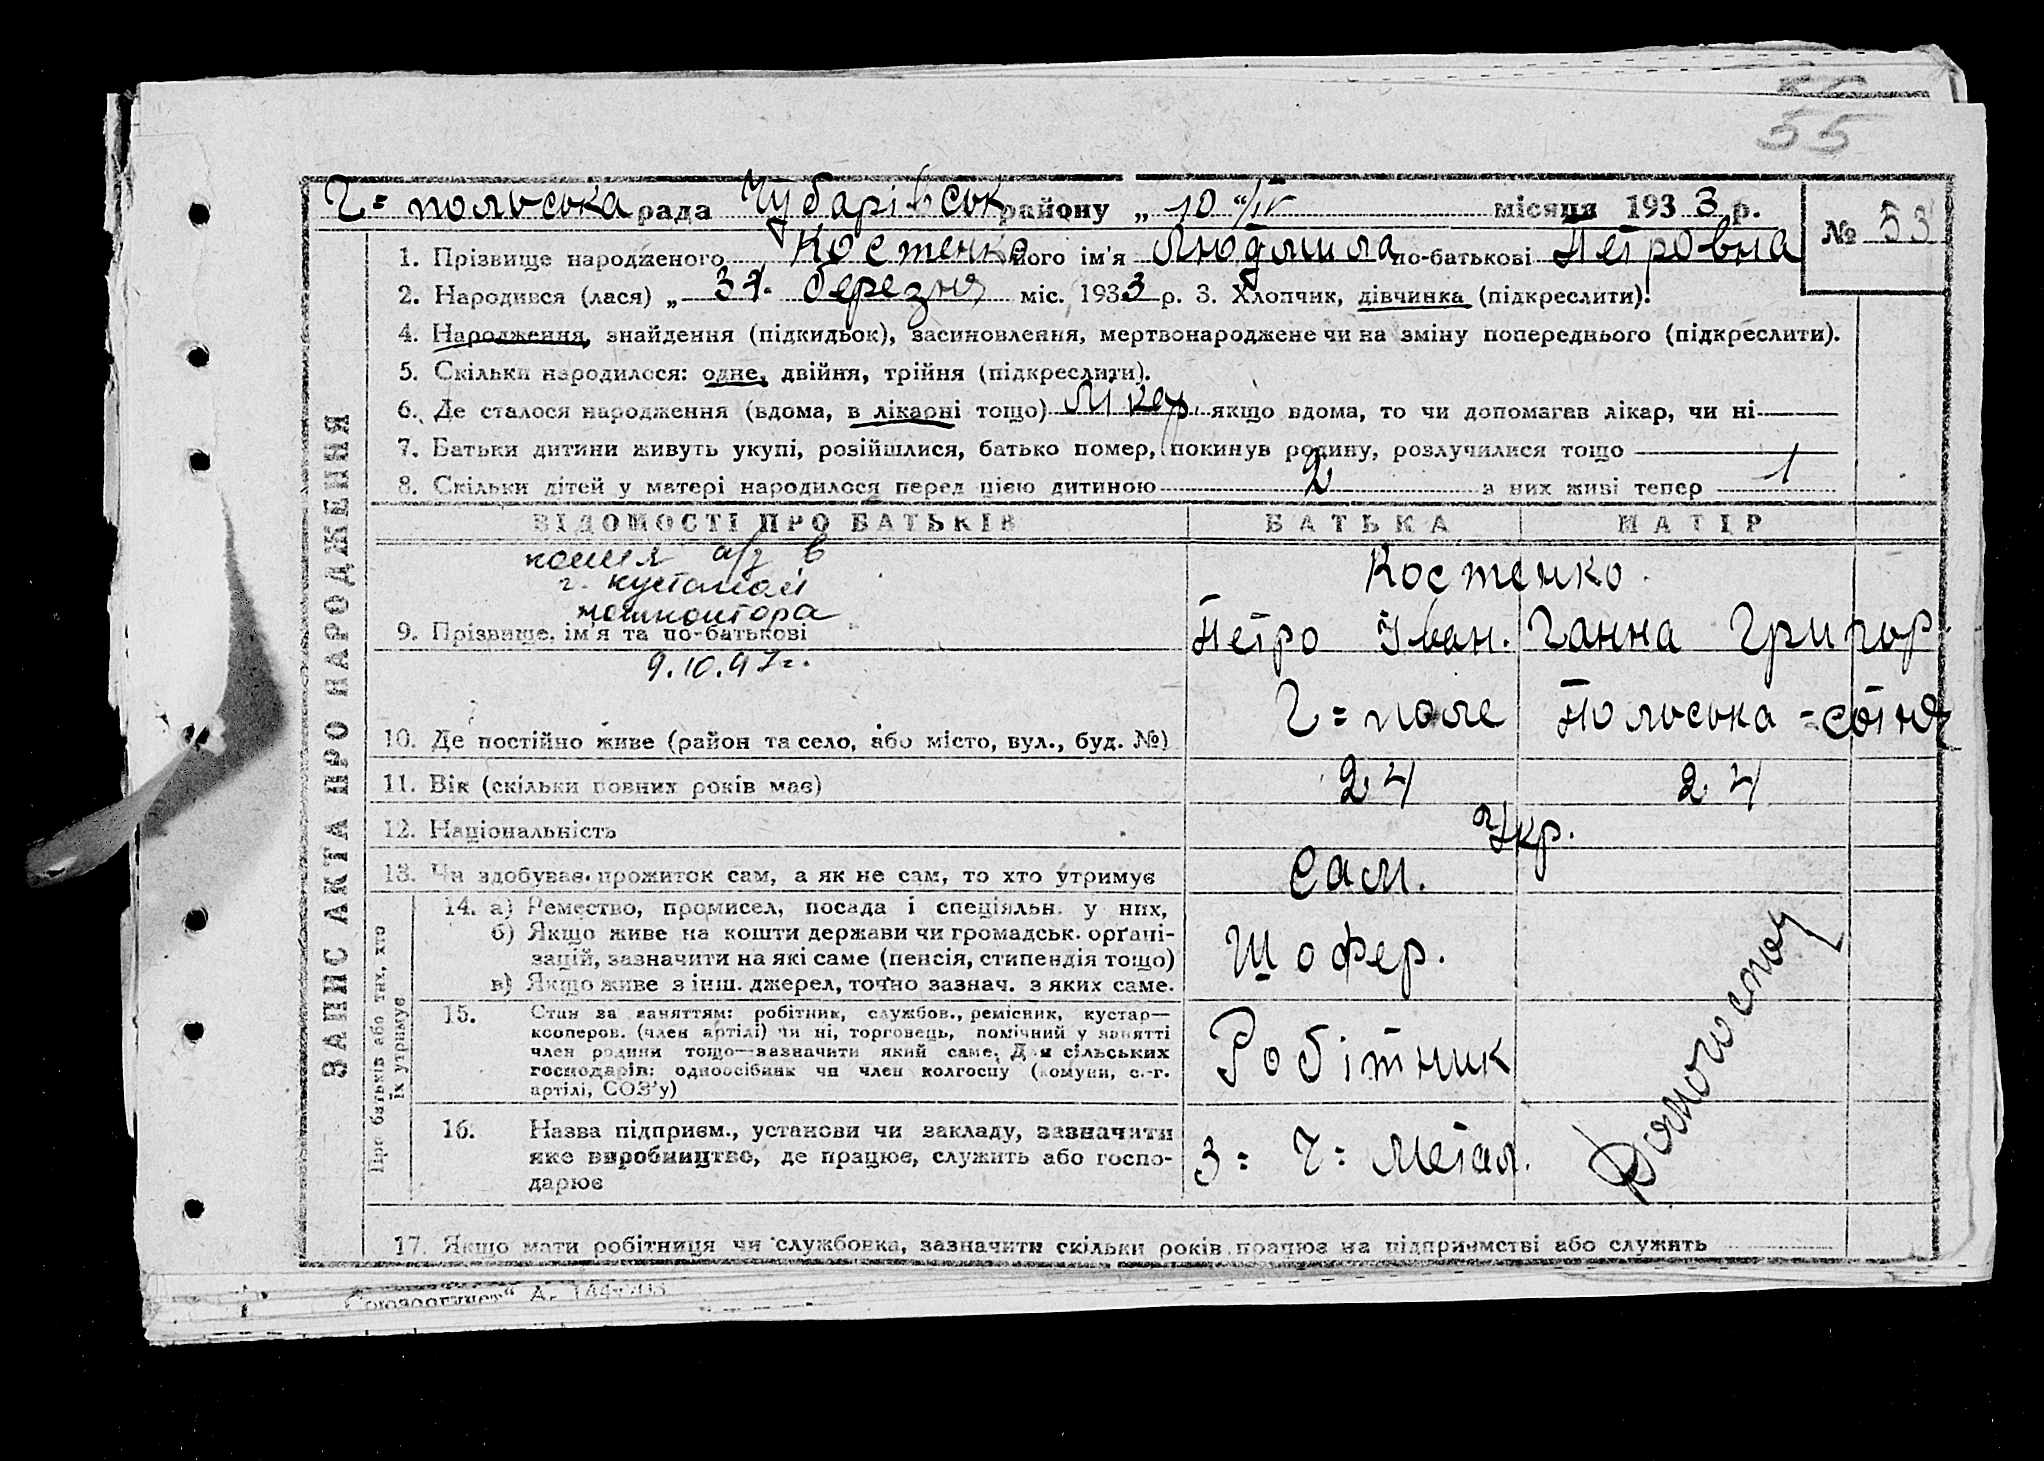 55
Г= польська рада Чубарівськ району „ 10 "/IV місяця 1933 р.
№ 53
1. Прізвище народженого Костенко його ім'я Людмила по-батькові Петровна
2. Народився (лася) „ 31. березня міс. 1933 р. 3. Хлопчик, дівчинка (підкреслити).
4. Народження, знайдення (підкидьок), засиновлення, мертвонароджене чи на зміну попереднього (підкреслити).
5. Скільки народилося: одне, двійня, трійня (підкреслити).
6. Де сталося народження (вдома, в лікарні тощо) Лікар. якщо вдома, то чи допомагав лікар, чи ні
7. Батьки дитини живуть укупі, розійшлися, батько помер, покинув родину, розлучилися тощо
8. Скільки дітей у матері народилося перед цією дитиною 2 з них живі тепер 1
ЗАПИС АКТА ПРО НАРОДЖЕННЯ
ВІДОМОСТІ ПРО БАТЬКІВ БАТЬКА МАТІР
копия а/з в
г.
Костенко
9. Прізвище, ім'я та по-батькові Петро Іван. Ганна Григор.
9.10.47г.
10. Де постійно живе (район та село, або місто, вул., буд. №) Г=поле Польська-сотня
11. Вік (скільки повних років має) 24 24
12. Національність Укр.
13. Чи здобуває прожиток сам, а як не сам, то хто утримує Сам.
Про батьків або тих, хто
їх утримує
14. а) Ремество, промисел, посада і спеціяльн. у них,
б) Якщо живе на кошти держави чи громадськ. орґані-
зацій, зазначити на які саме (пенсія, стипендія тощо)
в) Якщо живе з інш. джерел, точно зазнач. з яких саме.
Шофер.
15. Стан за заняттям: робітник, службов., ремісник, кустар—
кооперов. (член артілі) чи ні, торговець, помічний у занятті
член родини тощо—зазначити який саме. Для сільських
господарів: одноосібник чи член колгоспу (комуни, с.-г.
артілі, СОЗ'у)
Робітник
Домогоспод
16. Назва підприєм., установи чи закладу, зазначити
яке виробництво, де працює, служить або госпо-
дарює
З= Г= Метал.
17. Якщо мати робітниця чи службовка, зазначити скільки років працює на підприємстві або служить